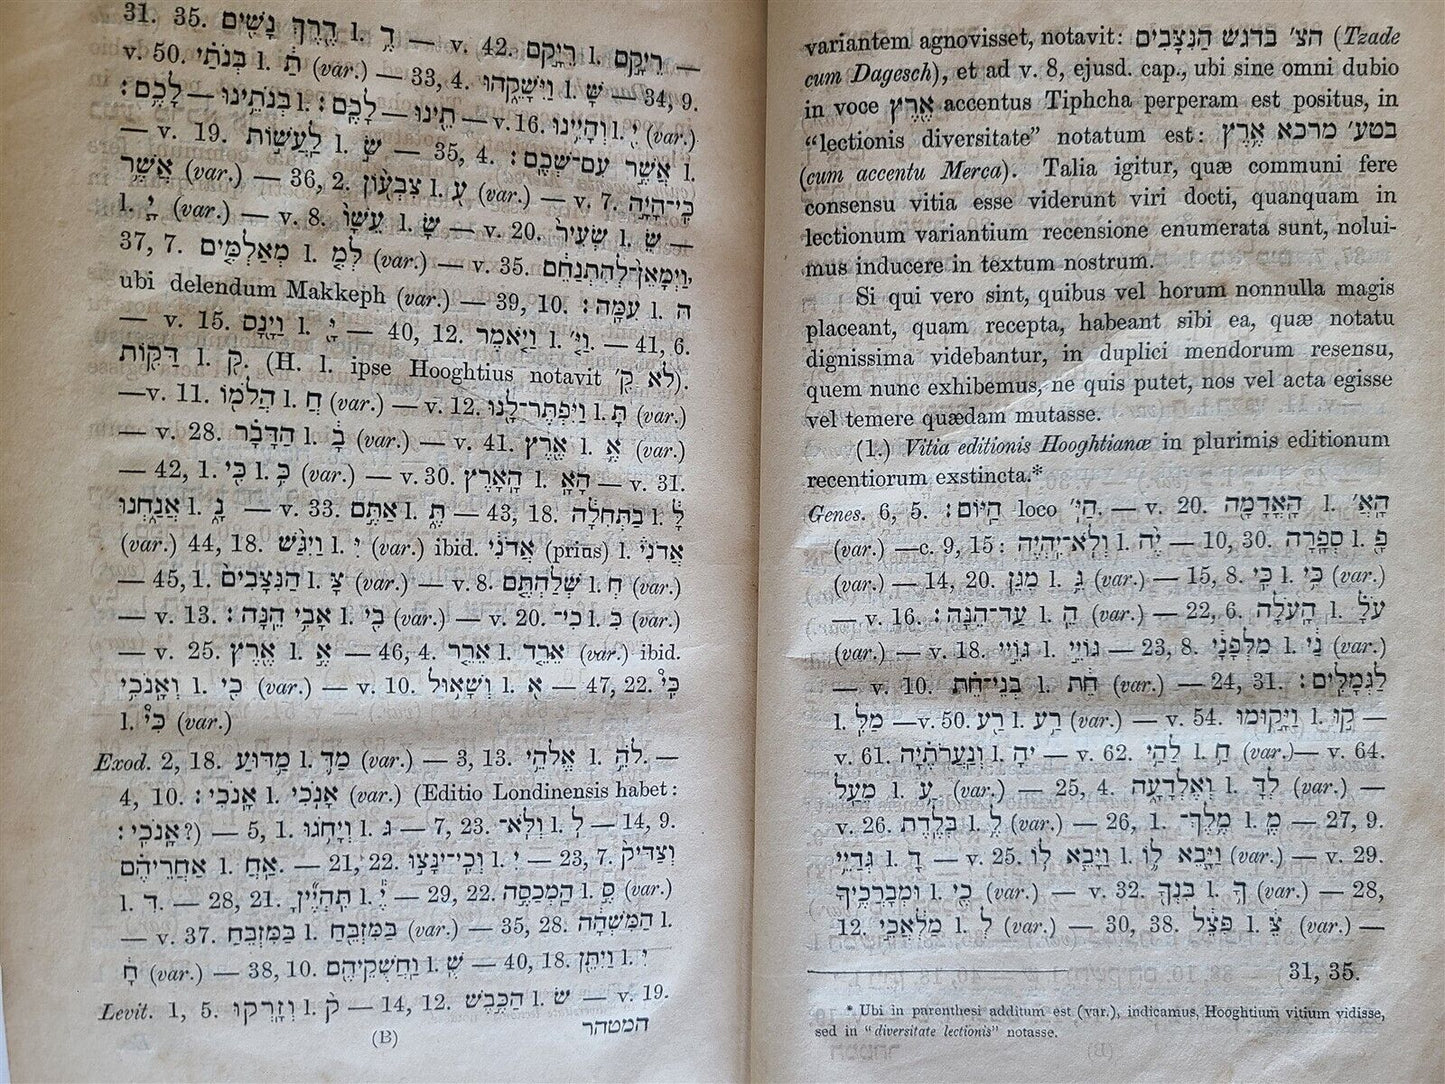 variantem agnovisset, notavit: הצ׳ בדגש הַנִּצָּבִים (Tzade
cum Dagesch), et ad v. 8, ejusd. cap., ubi sine omni dubio
in voce אֶרֶץ accentus Tiphcha perperam est positus, in
“lectionis diversitate” notatum est: בטע׳ מרכא אֶרֶץ
(cum accentu Merca). Talia igitur, quæ communi fere
consensu vitia esse viderunt viri docti, quanquam in
lectionum variantium recensione enumerata sunt, nolui-
mus inducere in textum nostrum.
Si qui vero sint, quibus vel horum nonnulla magis
placeant, quam recepta, habeant sibi ea, quæ notatu
dignissima videbantur, in duplici mendorum resensu,
quem nunc exhibemus, ne quis putet, nos vel acta egisse
vel temere quædam mutasse.
(1.) Vitia editionis Hooghtianæ in plurimis editionum
recentiorum exstincta.*
Genes. 6, 5. הַיּוֹם׃ loco הַיּ׳. — v. 20. הָאֲדָמָה l. הָאֲ׳
(var.) —c. 9, 15: וְלֹא־יִהְיֶה l. יֶה — 10, 30. סְפָרָה l. פָ
(var.) — 14, 20. מִגֵּן l. גֵּ (var.) — 15, 8. כִּי l. כִּי (var.)
— v. 16. עַד־הֵנָּה׃ l. הֵ (var.) — 22, 6. הָעֹלָה l. עֹלָ
(var.) — v. 18. גּוֹיֵי l. גּוֹיֵי — 23, 8. מִלְּפָנַי l. נַי (var.)
— v. 10. בְּנֵי־חֵת l. חֵת (var.) — 24, 31. לַגְּמַלִּים׃
l. מַלִּ —v. 50. רַע l. רַע (var.) — v. 54. וַיָּקוּמוּ l. קוּ —
v. 61. וְנַעֲרֹתֶיהָ l. יהָ — v. 62. לַחַי l. חַ (var.)— v. 64.
מֵעַל l. עַ (var.) — 25, 4. וְאֶלְדָּעָה l. לְדָּ (var.) —
v. 26. בְּלֶדֶת l. לֶ (var.) — 26, 1. מֶלֶךְ־ l. מֶ — 27, 9.
גְּדָיֵי l. דָ — v. 25. וַיָּבֵא לוֹ l. וַיָּבֵא לוֹ (var.) — v. 29.
וּמְבָרְכֶיךָ l. כֶי (var.) — v. 32. בִּנְךָ l. ךָ (var.) — 28,
12. מַלְאֲכֵי l. לְ (var.) — 30, 38. פִּצֵּל l. צֵּ (var.) —
31, 35.
* Ubi in parenthesi additum est (var.), indicamus, Hooghtium vitium vidisse,
sed in “diversitate lectionis” notasse.
31. 35. דֶרֶךְ נָשִׁים l. דֶ — v. 42. רֵיקָם l. רֵיקָם —
v. 50. בְּנֹתַי l. תַ (var.) — 33, 4. וַיִּשָּׁקֵהוּ l. שָּׁ — 34, 9.
בְּנֹתֵינוּ — לָכֶם׃ l. תֵינוּ — לָכֶם׃ — v. 16. וְהָיִינוּ l. יִ (var.)
— v. 19. לַעֲשׂוֹת l. שׂ — 35, 4. אֲשֶׁר עִם־שְׁכֶם׃ l.
אֲשֶׁר (var.) — 36, 2. צִבְעוֹן l. עֹ (var.) — v. 7. כִּי־הָיָה
l. יָ (var.) — v. 8. עֵשָׂו l. שָׂ — v. 20. שֵׂעִיר l. שֵׂ —
37, 7. מְאַלְּמִים l. לְּמִ (var.) — v. 35. וַיְמָאֵן־לְהִתְנַחֵם
ubi delendum Makkeph (var.) — 39, 10. עִמָּהּ׃ l. ה
— v. 15. וַיָּנָס l. יָּ — 40, 12. וַיֹּאמֶר l. וַיֹּ׳. — 41, 6.
דַּקּוֹת l. ק. (H. l. ipse Hooghtius notavit לא ק׳).
—v. 11. הֲלֹמוֹ l. חֲ (var.) — v. 12. וַיִּפְתָּר־לָנוּ l. תָּ (var.)
— v. 28. הַדָּבָר l. בָ (var.) — v. 41. אֶרֶץ l. אֶ (var.)
— 42, 1. כִּי l. כִּ (var.) — v. 30. הָאָרֶץ l. הָאָ — v. 31.
אֲנָחְנוּ l. נָ — v. 33. אַתֶּם l. תֶּ — 43, 18. בַּתְּחִלָּה l. לָּ
(var.) 44, 18. וַיִּגַּשׁ l. יִּ (var.) ibid. אֲדֹנִי (prius) l. אֲדֹנִי
— 45, 1. הַנִּצָּבִים l. צָּ (var.) — v. 8. שְׁלַחְתֶּם l. חְ (var.)
— v. 13. אָבִי הֵנָּה׃ l. בִי (var.) — v. 20. כִּי־ l. כִּ (var.)
— v. 25. אֶרֶץ l. אֶ — 46, 4. אֵרֵד l. אֵרֵד (var.) ibid.
וְאָנֹכִי l. כִי (var.) — v. 10. וְשָׁאוּל l. א — 47, 22. כִּי
l. כִּי (var.)
Exod. 2, 18. מַדּוּעַ l. מַדּ (var.) — 3, 13. אֱלֹהֵי l. לֹהֵ. —
4, 10. אָנֹכִי׃ l. אָנֹכִי (var.) (Editio Londinensis habet:
אָנֹכִי׃?) — 5, 1. וְיָחֹגּוּ l. גּ — 7, 23. וְלֹא־ l. ל — 14, 9.
אַחֲרֵיהֶם l. אַחֲ. — 21, 22. וְכִי־יִנָּצוּ l. יִ — 23, 7. וְצַדִּיק
l. ד. — 28, 21. תִּהְיֶיןָ l. יֶ — 29, 22. הַמְכַסֶּה l. סֶּ (var.)
— v. 37. בַּמִּזְבֵּחַ l. בַּמִּזְבֵּחַ (var.) — 35, 28. הַמִּשְׁחָה l.
חָ (var.) — 38, 10. וַחֲשֻׁקֵיהֶם l. שֻׁ — 40, 18. וַיִּתֵּן l. יִּ
Levit. 1, 5. וְזָרְקוּ l. ק — 14, 12. הַכֶּבֶשׂ l. שׂ — v. 19.
(B) המטהר